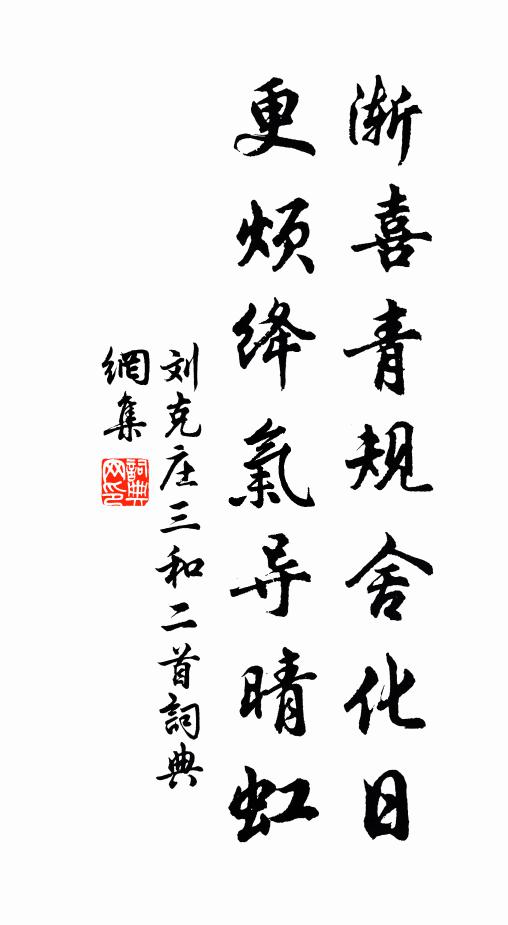 渐喜青规舍化日
更烦绛氣导晴虹
刘克庄三和二首詞典
網集
詞典
网印